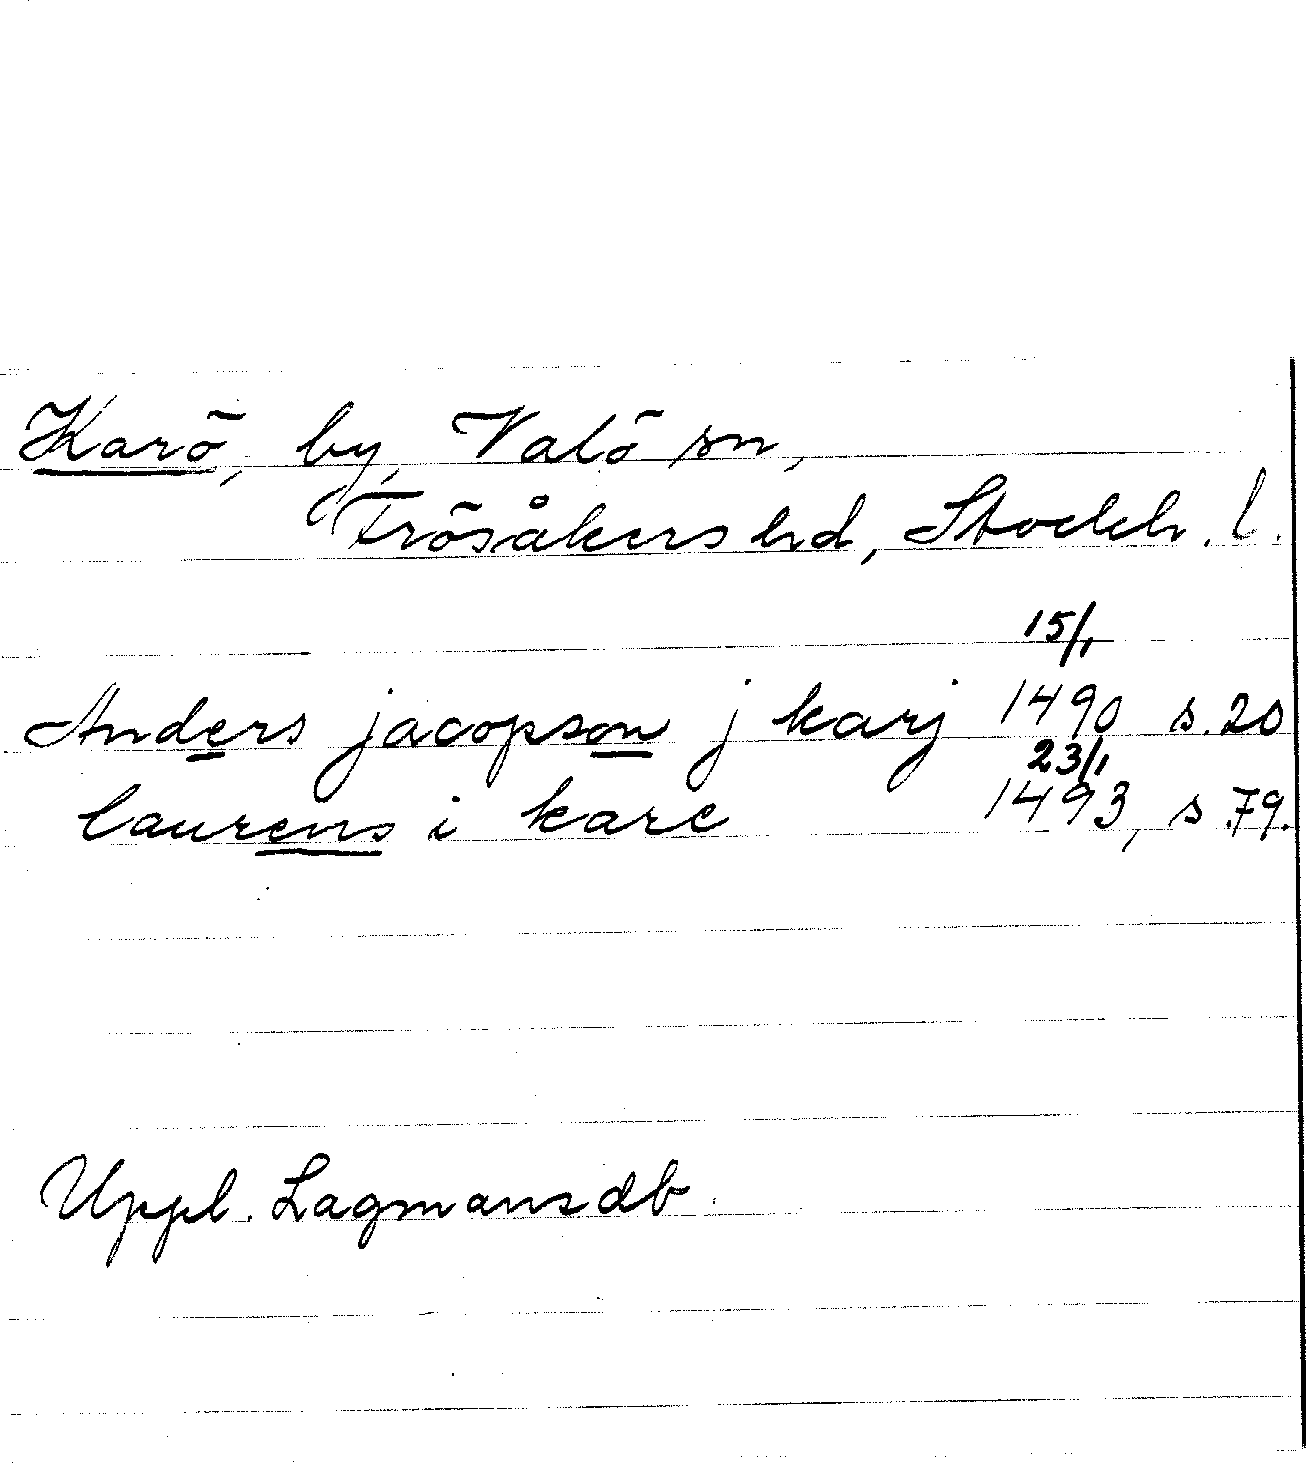 Karö, by, Valö sn,
Frösåkers hd, Stockh. l.
15/1
Anders jacopson j karj 1490 s. 20
23/1
laurens i kare 1493, s. 79.
Uppl. Lagmansdb.